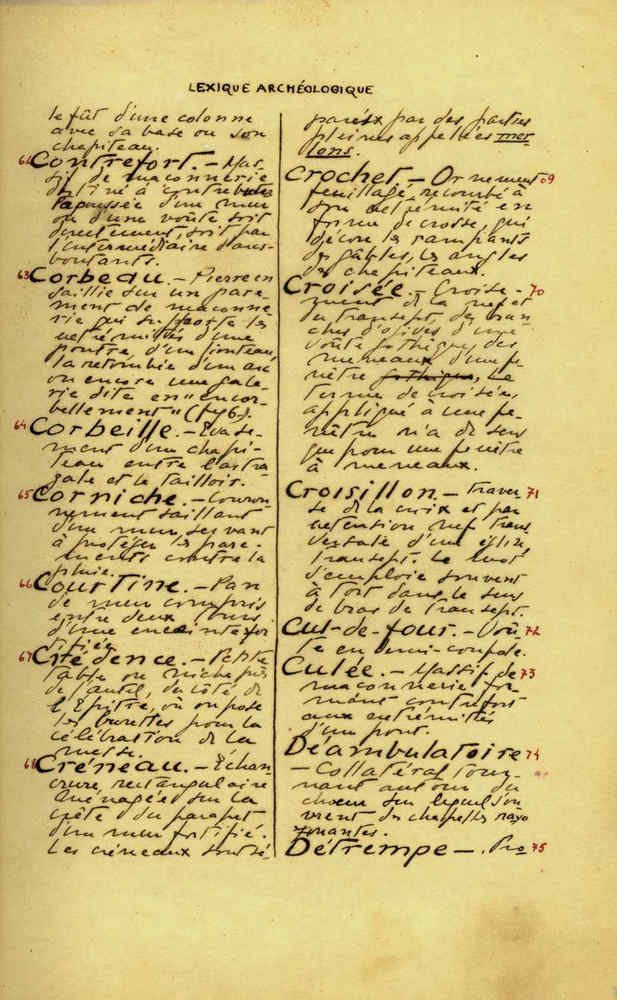 LEXIQUE ARCHÉOLOGIQUE
le fût d'une colonne
avec sa base ou son
chapiteau.
62 Contrefort. – Mas-
sif de maçonnerie
destiné à contrebuter
la poussée d'un mur
ou d'une voûte soit
directement, soit par
l'intermédiaire d'arcs-
boutants.
63 Corbeau. – Pierre en
saillie sur un pare-
ment de maçonne-
rie qui supporte les
extrémités d'une
poutre, d'un linteau,
la retombée d'un arc
ou encore une gale-
rie dite en "encor-
bellement" (fig 6).
64 Corbeille. – Evase-
ment d'un chapi-
teau entre l'astra-
gale et le tailloir.
65 Corniche. – Couron-
nement saillant
d'un mur, servant
à protéger les pare-
ments contre la
pluie.
66 Courtine. – Pan
de mur compris
entre deux tours
d'une enceinte for-
tifiée.
67 Crédence. – Petite
table ou niche près
de l'autel, du côté de
l'Epître, où on pose
les burettes pour la
célébration de la
messe.
68 Créneau. – Echan-
crure, rectangulaire
ménagée sur la
crête du parapet
d'un mur fortifié.
Les créneaux sont sé-
parés par des parties
pleines appelées mer-
lons.
Crochet – Ornement 69
feuillagé, recourbé à
son extrémité en
forme de crosse, qui
décore les rampants
des gâbles, les angles
des chapiteaux.
Croisée. – Croise- 70
ment de la nef et
du transept, des bran-
ches d'ogives d'une
voûte gothique, des
meneaux d'une fe-
nêtre gothique. Le
terme de croisée,
appliqué à une fe-
nêtre n'a de sens
que pour une fenêtre
à meneaux.
Croisillon. – Traver 71
se de la croix et par
extension nef trans
versale d'un église,
transept. Le mot
s'emploie souvent
à tort dans le sens
de bras de transept.
Cul-de-four. – Voû 72
te en demi-coupole.
Culée. – Massif de 73
maçonnerie for-
mant contrefort
aux extrémités
d'un pont.
Déambulatoire 74
– Collatéral tour-
nant autour du
chœur sur lequel s'ou-
vrent des chapelles rayo
nnantes.
Détrempe –. Pro 75